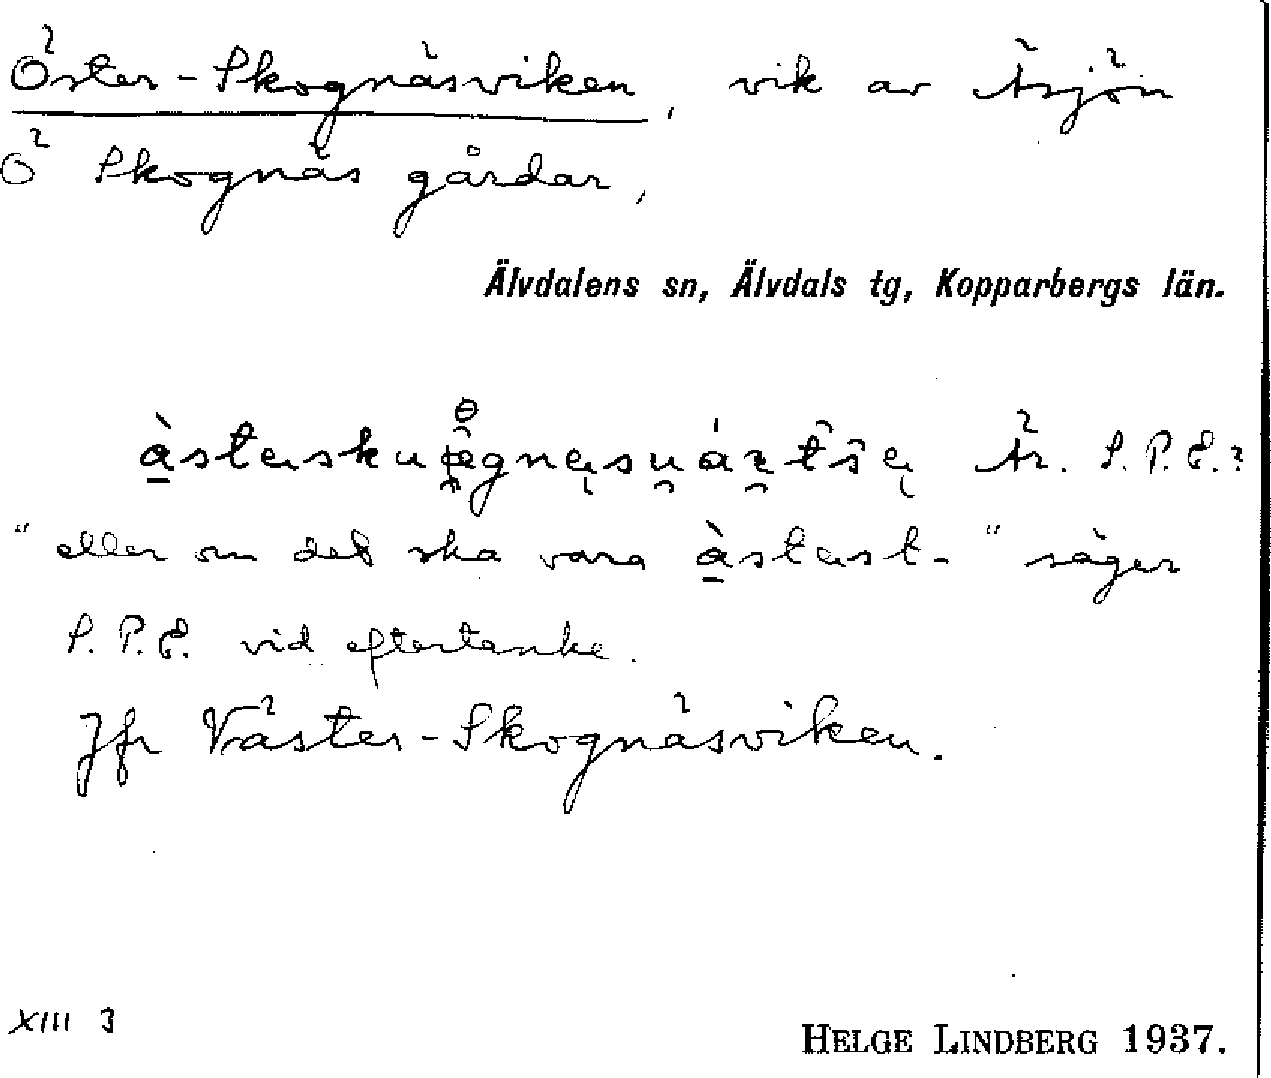 Öster-Skognäsviken, vik av Äsjön
Ö Skognäs gårdar,
Älvdalens sn, Älvdals tg, Kopparbergs län.
Är. S. P. E.?
"eller om det ska vara àstest-" säger
S. P. E. vid eftertanke.
Jfr Väster-Skognäsviken.
XIII 3
HELGE LINDBERG 1937.